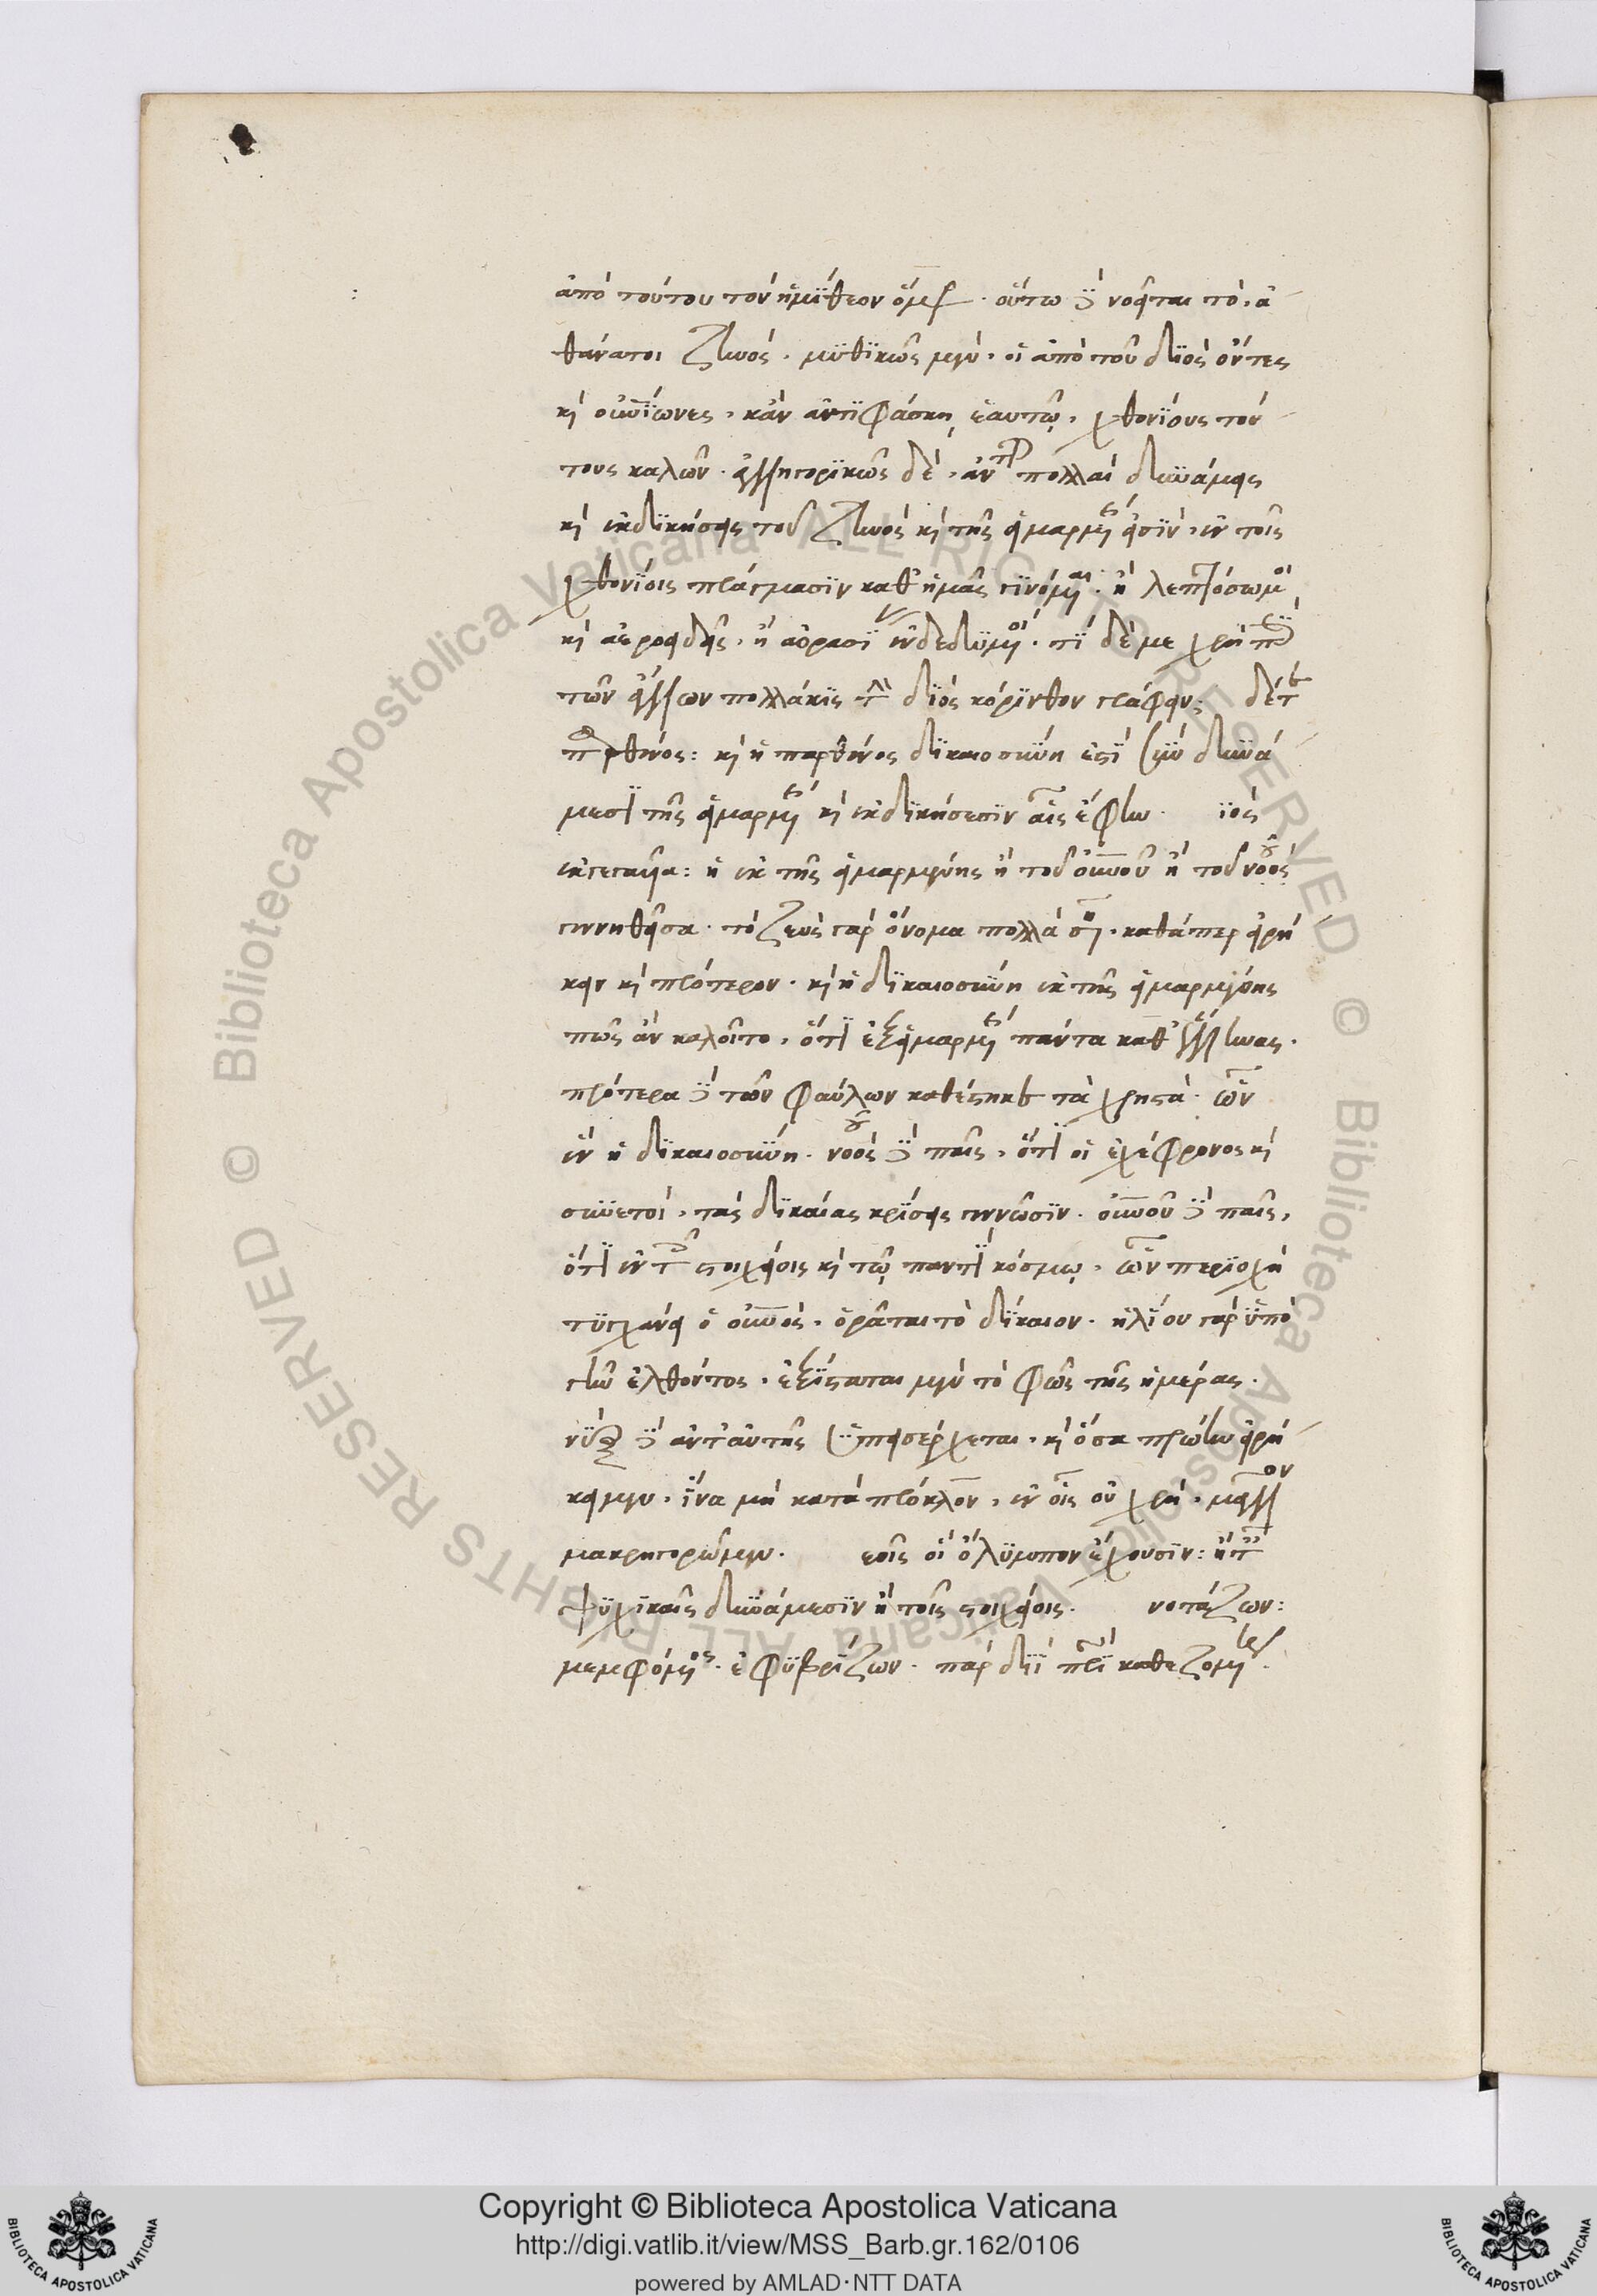 ἀπὸ τούτου τὸν ἡμίθεον ὅμως. οὕτω δὲ νοεῖται τὸ, ἀ
θάνατοι Ζηνός. μυθικῶς μὲν, οἱ ἀπὸ τοῦ διὸς ὄντες
καὶ οὐρανίωνες, κἂν ἀντιφάσκῃ ἑαυτῷ, χθονίους τού
τους καλῶν. ἀλληγορικῶς δὲ, ἀντὶ τοῦ πολλαὶ δυνάμεις
καὶ ἐκδικήσεις τοῦ Ζηνὸς καὶ τῆς εἱμαρμένης εἰσὶν, ἐν τοῖς
χθονίοις πλάσμασιν καθ' ἡμᾶς γινόμεναι. ἢ λεπτόσωμοι
καὶ ἀεροειδεῖς, ἢ ἀορασίαν ἐνδεδυμένοι. τί δέ με χρὴ περὶ
τῶν ἄλλων πολλάκις τὸν διὸς κόρινθον γράφειν; δέ τε
παρθένος: καὶ ἡ παρθένος δικαιοσύνη ἐστὶ σὺν δυνά
μεσι τῆς εἱμαρμένης καὶ ἐκδικήσεσιν αἷς ἔφην. ιὸς
ἐκγεγαυῖα: ἡ ἐκ τῆς εἱμαρμένης ἢ τοῦ οὐρανοῦ ἢ τοῦ νοὸς
γεννηθεῖσα. τὸ ζεὺς γὰρ ὄνομα πολλὰ σημαίνει. καθάπερ εἰρή
κειν καὶ πρότερον. καὶ ἡ δικαιοσύνη ἐκ τῆς εἱμαρμένης
πῶς ἂν καλοῖτο, ὅτι ἐξ εἱμαρμένης πάντα καθ' Ἕλληνας.
πρότερα δὲ τῶν φαύλων καθέστηκε τὰ χρηστὰ. ὧν
ἓν ἡ δικαιοσύνη. νοὸς δὲ παῖς, ὅτι οἱ ἐχέφρονος καὶ
συνετοὶ, τὰς δικαίας κρίσεις γεννῶσιν. οὐρανοῦ δὲ παῖς,
ὅτι ἐν τοῖς στοιχείοις καὶ τῷ παντὶ κόσμῳ, ὧν περιοχὴ
τυγχάνει ὁ οὐρανὸς, ὁρᾶται τὸ δίκαιον. ἡλίου γὰρ ὑπὸ
γῆν ἐλθόντος, ἐξίσταται μὲν τὸ φῶς τῆς ἡμέρας.
νὺξ δὲ ἀντ' αὐτῆς ὑπεισέρχεται, καὶ ὅσα πρώην εἰρή
κειμεν, ἵνα μὴ κατὰ πρόκλον, ἐν οἷς οὐ χρὴ, μᾶλλον
μακρηγορῶμεν. εοῖς οἳ ὄλυμπον ἔχουσιν: ἢ ταῖς
ψυχικαῖς δυνάμεσιν ἢ τοῖς στοιχείοις. νοτάζων:
μεμφόμενος. ἐφυβρίζων. πὰρ διὶ πατρὶ καθεζομένη.
Copyright © Biblioteca Apostolica Vaticana
http://digi.vatlib.it/view/MSS_Barb.gr.162/0106
powered by AMLAD·NTT DATA